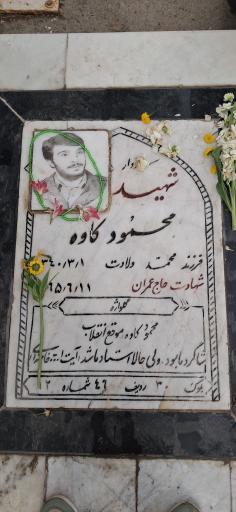 سردار
شهید
محمود کاوه
فرزند محمد ولادت ۱۳۴۰/۳/۱
شهادت حاج عمران ۶۵/۶/۱۱
گلواژه
محمود کاوه موقع انقلاب
شاگرد ما بود، ولی حالا استاد ما شد. آیت ا... خامنه‌ای
بلوک ۳۰ ردیف ۴۶ شماره ۲